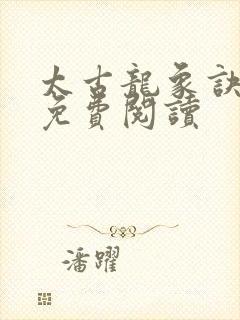 太古龍象訣
免費閱讀
潘躍